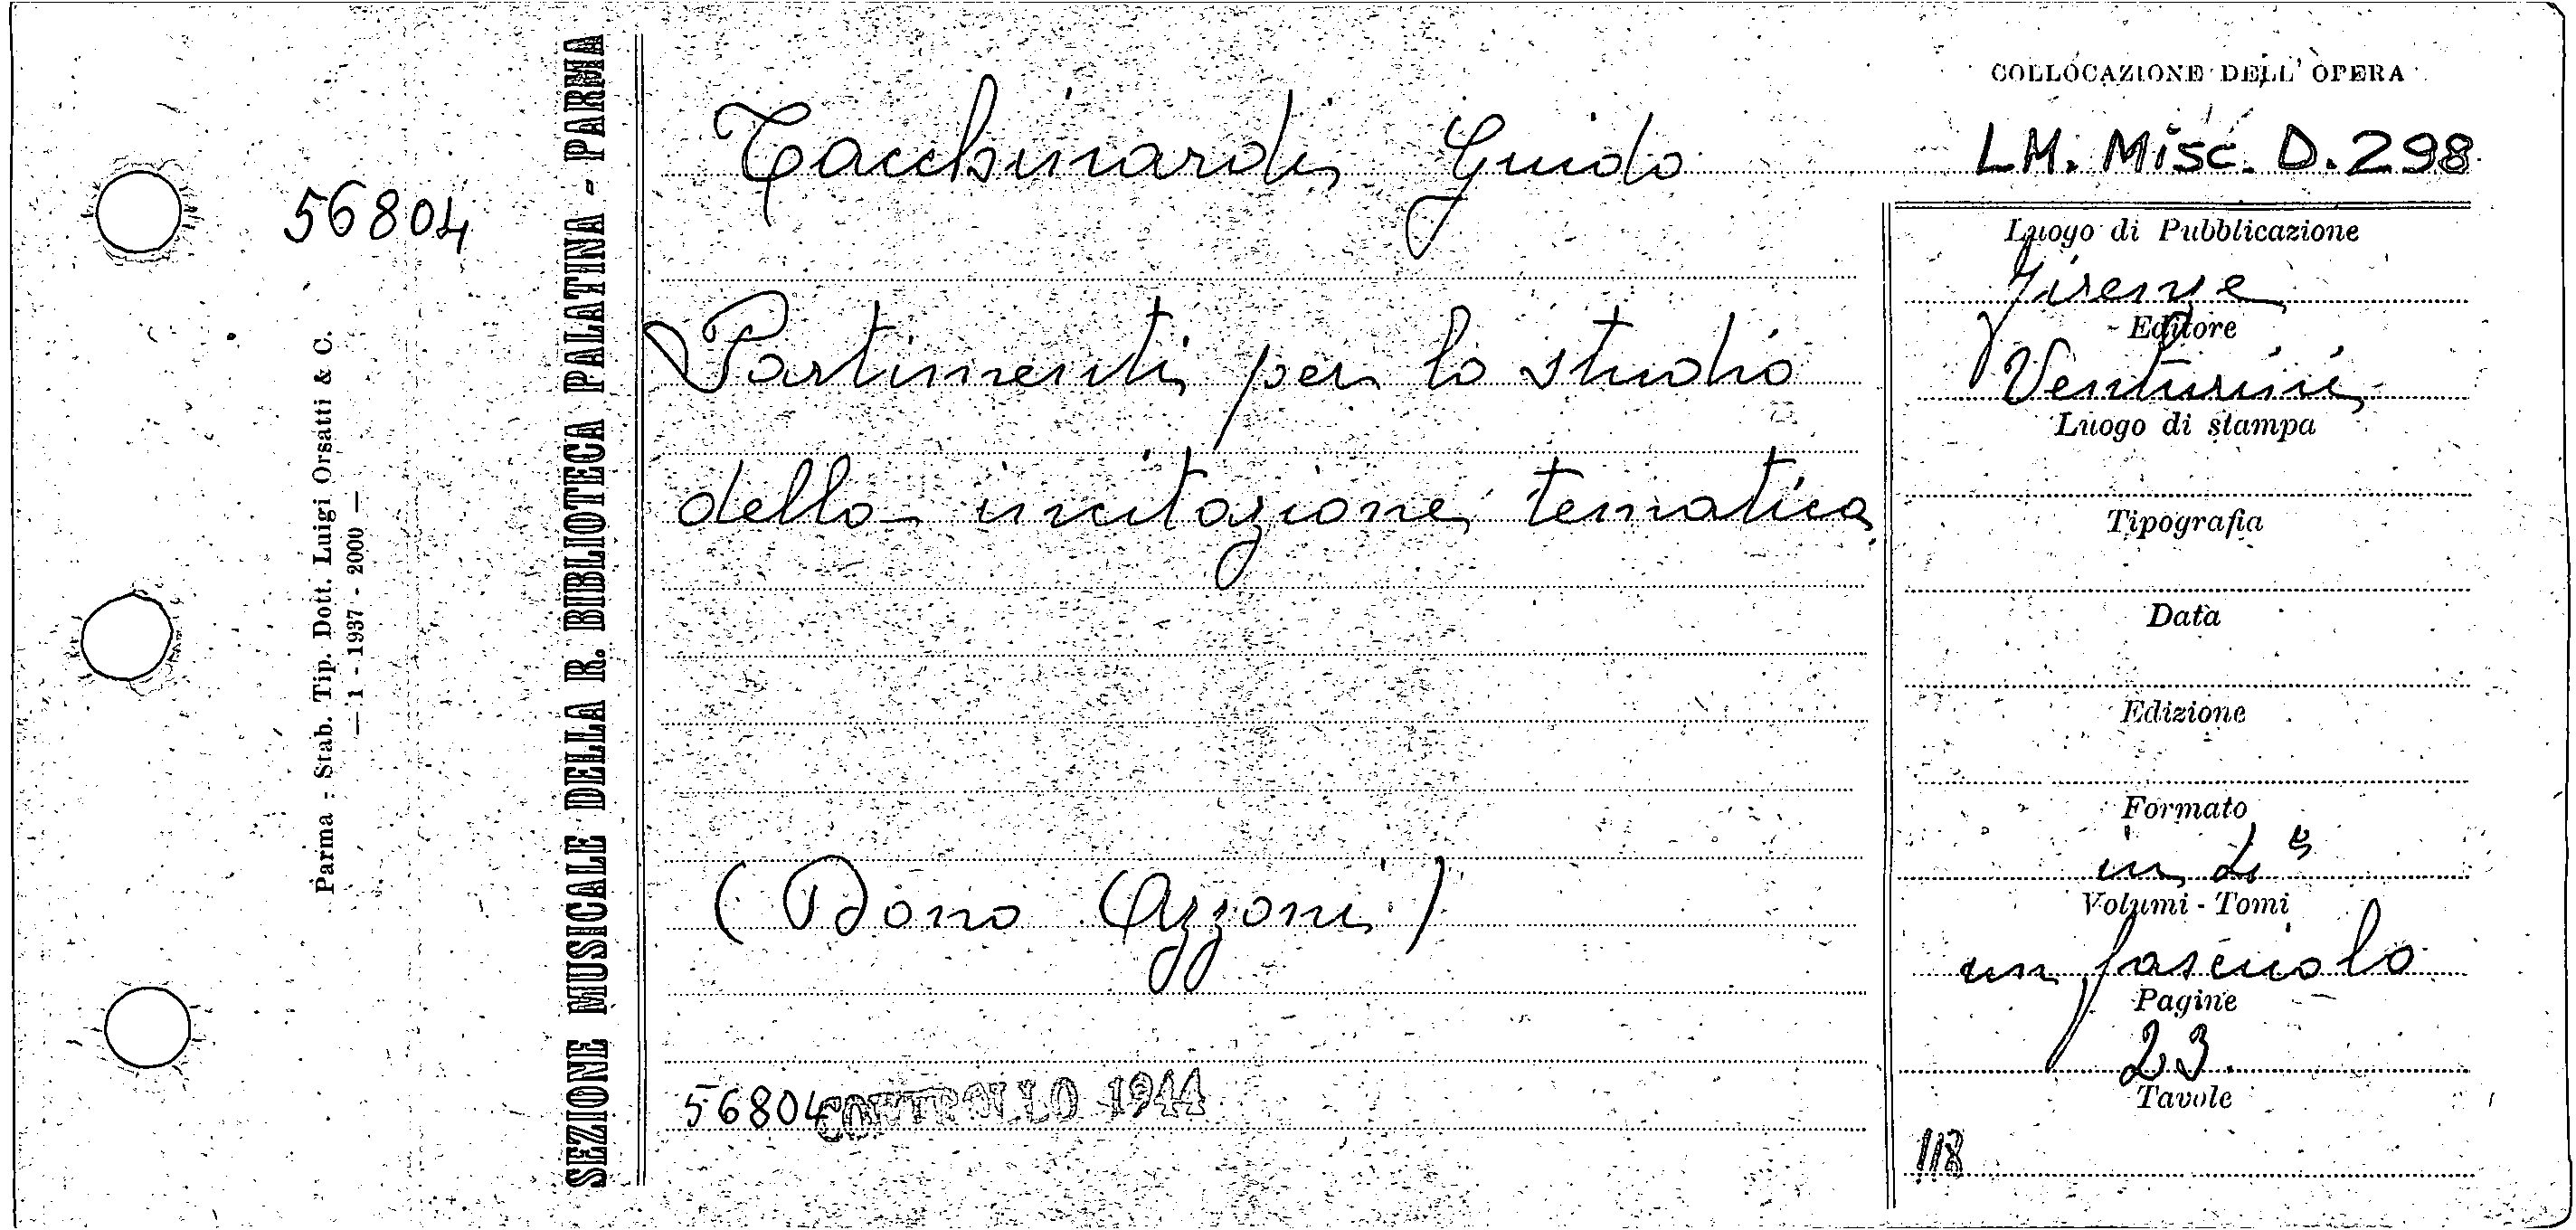 COLLOCAZIONE DELL' OPERA
Tacchinardi Guido
LM. Misc. D.298
56804
Luogo di Pubblicazione
Firenze
Editore
Partimenti per lo studio
Venturini
Luogo di stampa
della imitazione tematica
Tipografia
Data
Edizione
Formato
in 4°
(Dono Azzoni)
Volumi - Tomi
un fascicolo
Pagine
23
56804 CONTROLLO 1944
Tavole
118
SEZIONE MUSICALE DELLA R. BIBLIOTECA PALATINA - PARMA
Parma - Stab. Tip. Dott. Luigi Orsatti & C.
— 1 - 1937 - 2000 —